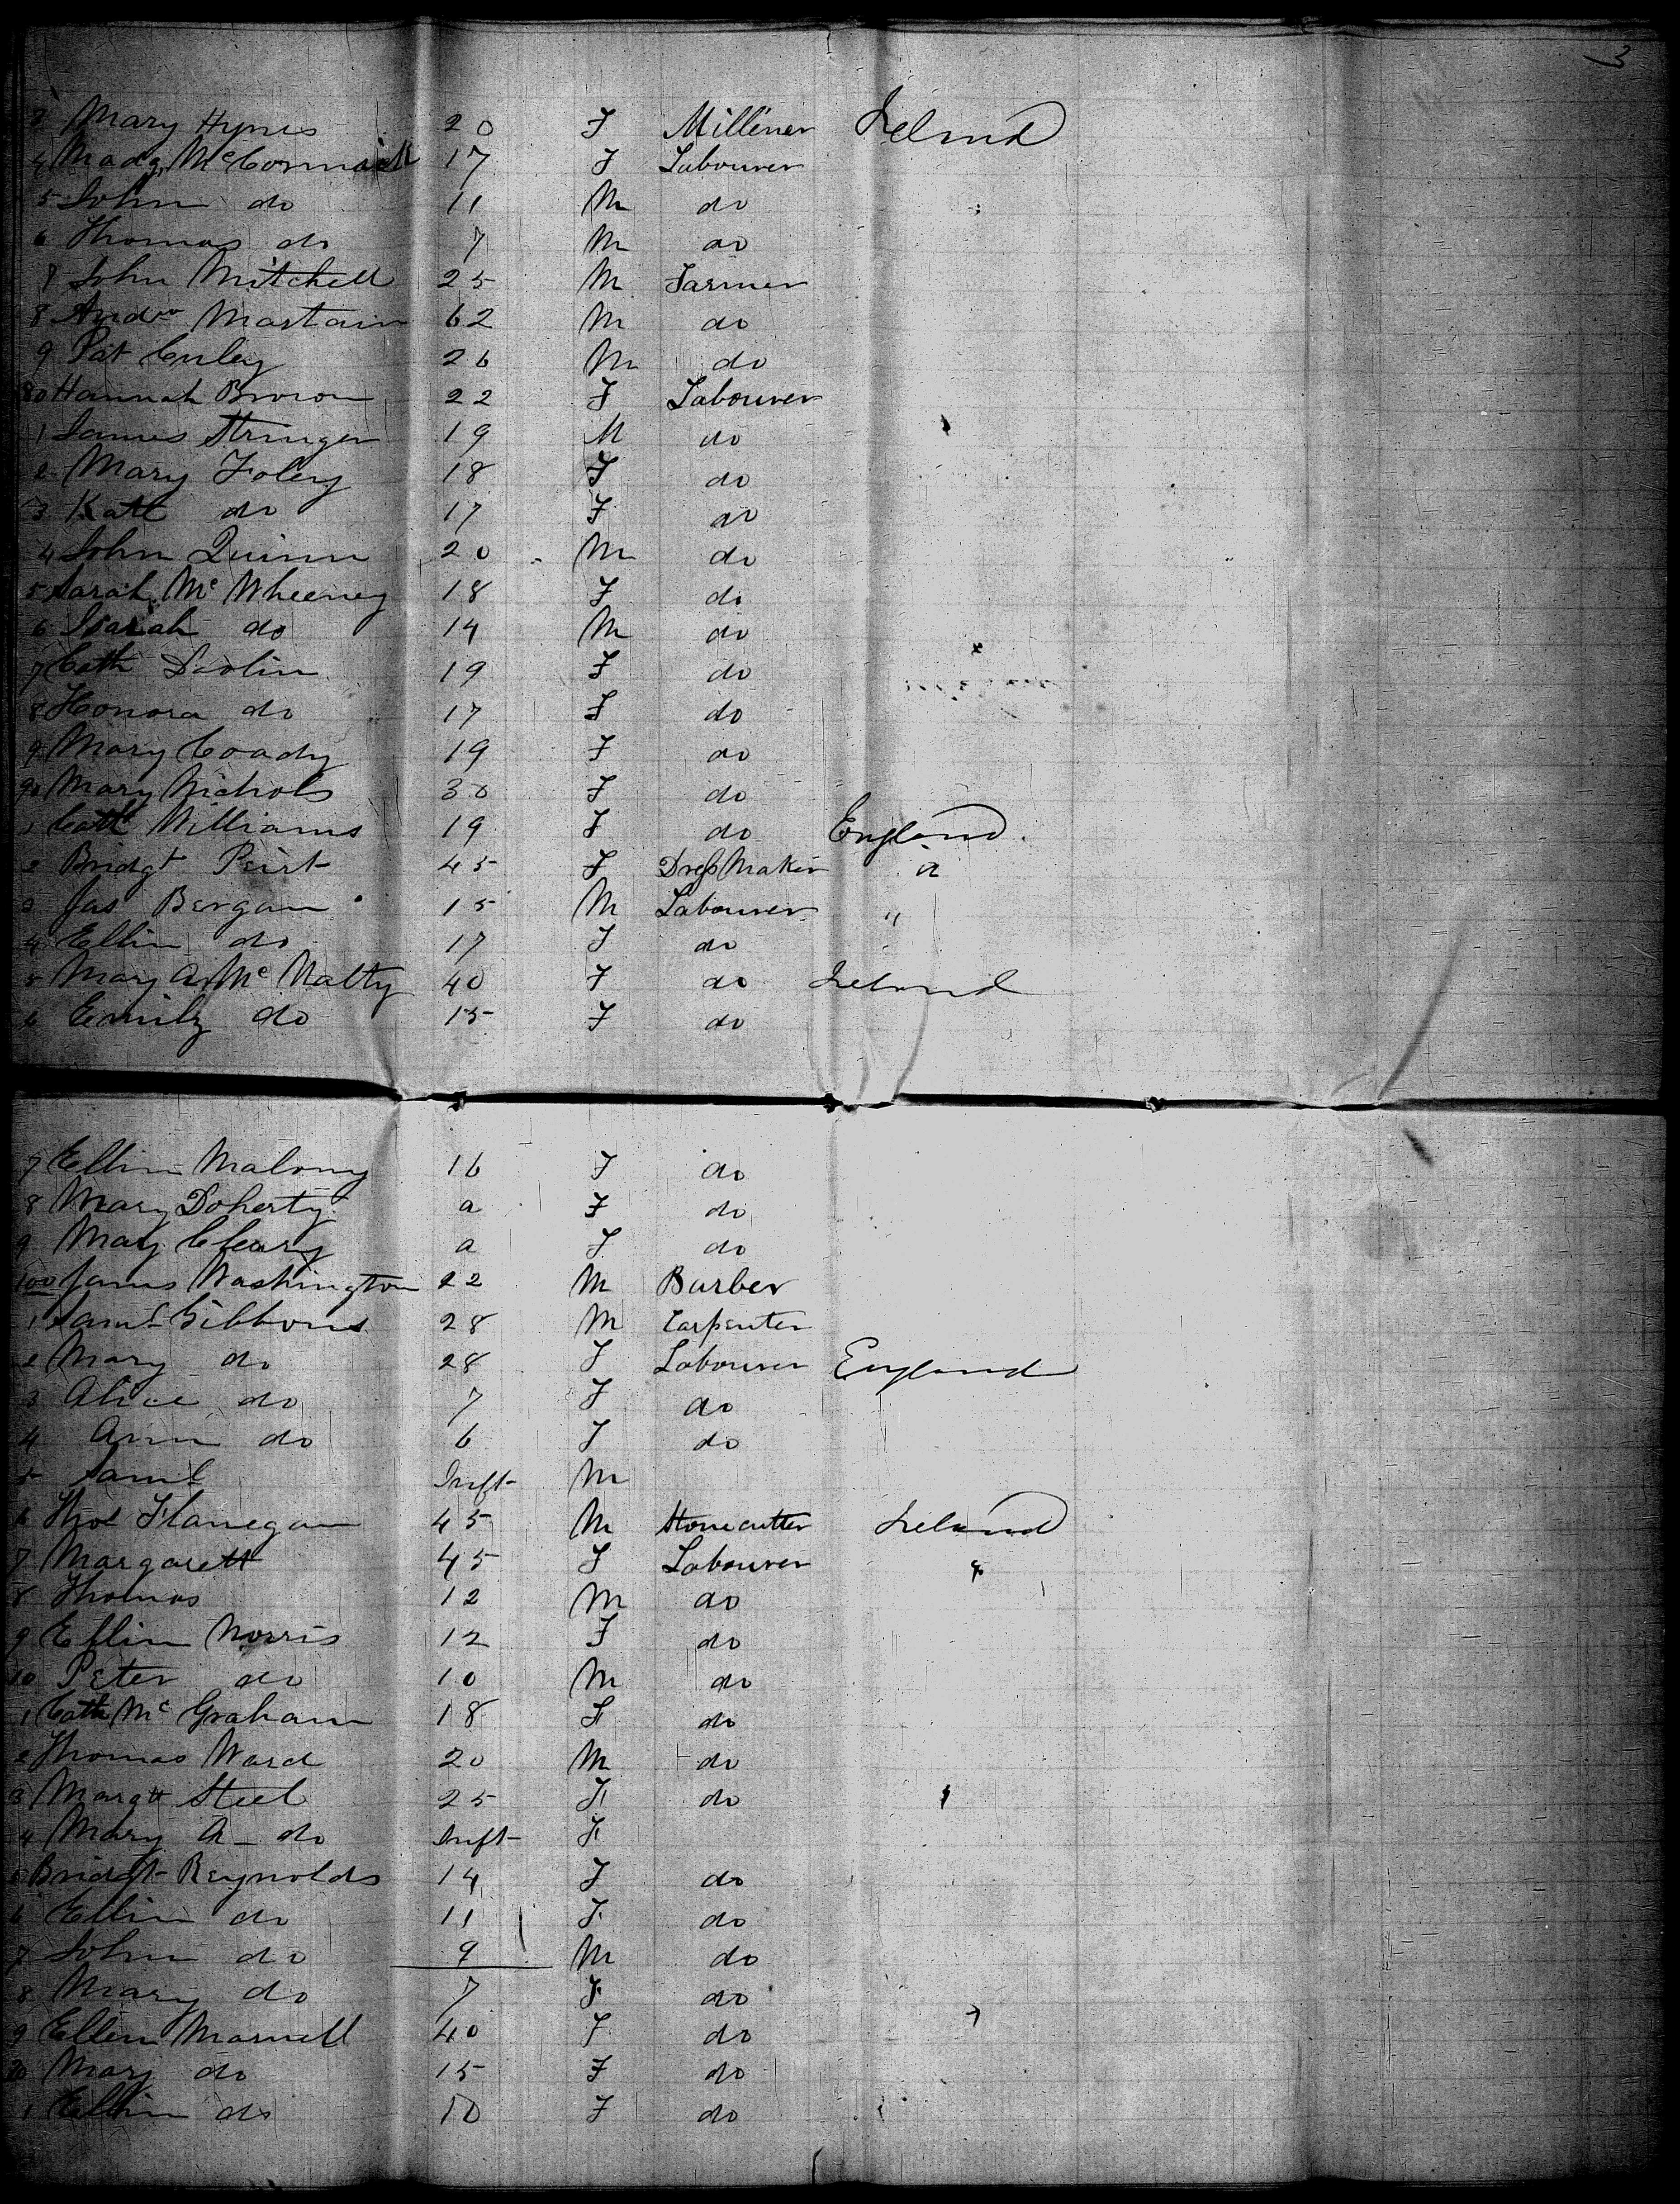 3
Mary Hynes 20 F Milliner Ireland
4 Madg McCormack 17 F Labourer
5 John do 11 M do
6 Thomas do 7 M do
7 John Mitchell 25 M Farmer
8 Andw Martain 62 M do
9 Pat Curley 26 M do
80 Hannah Brown 22 F Labourer
1 James Stringer 19 M do
2 Mary Foley 18 F do
3 Kate do 17 F do
4 John Quinn 20 M do
5 Sarah Mc Wheeney 18 F do
6 Isaiah do 14 M do
7 Cath Doolin 19 F do
8 Honora do 17 F do
9 Mary Coady 19 F do
90 Mary Nichols 30 F do
1 Cath Williams 19 F do England
2 Bridgt Peirt 45 F Dress Maker "
3 Jas Bergan 15 M Labourer "
4 Ellin do 17 F do
5 Mary A Mc Nalty 40 F do Ireland
6 Emily do 15 F do
7 Ellin Malony 16 F do
8 Mary Doherty a F do
9 Mary Cleary a F do
100 James Washington 22 M Barber
1 Saml Gibbons 28 M Carpenter
2 Mary do 28 F Labourer England
3 Alice do 7 F do
4 Ann do 6 F do
5 Saml Inft M
6 Thos Flanegan 45 M Stonecutter Ireland
7 Margarett 45 F Labourer
8 Thomas 12 M do
9 Ellin Norris 12 F do
10 Peter do 10 M do
1 Cath Mc Graham 18 F do
2 Thomas Ward 20 M do
3 Margtt Steel 25 F do
4 Mary A do Inft F
5 Bridgt Reynolds 14 F do
6 Ellin do 11 F do
7 John do 9 M do
8 Mary do 7 F do
9 Ellen Marnell 40 F do
20 Mary do 15 F do
1 Ellin do 10 F do